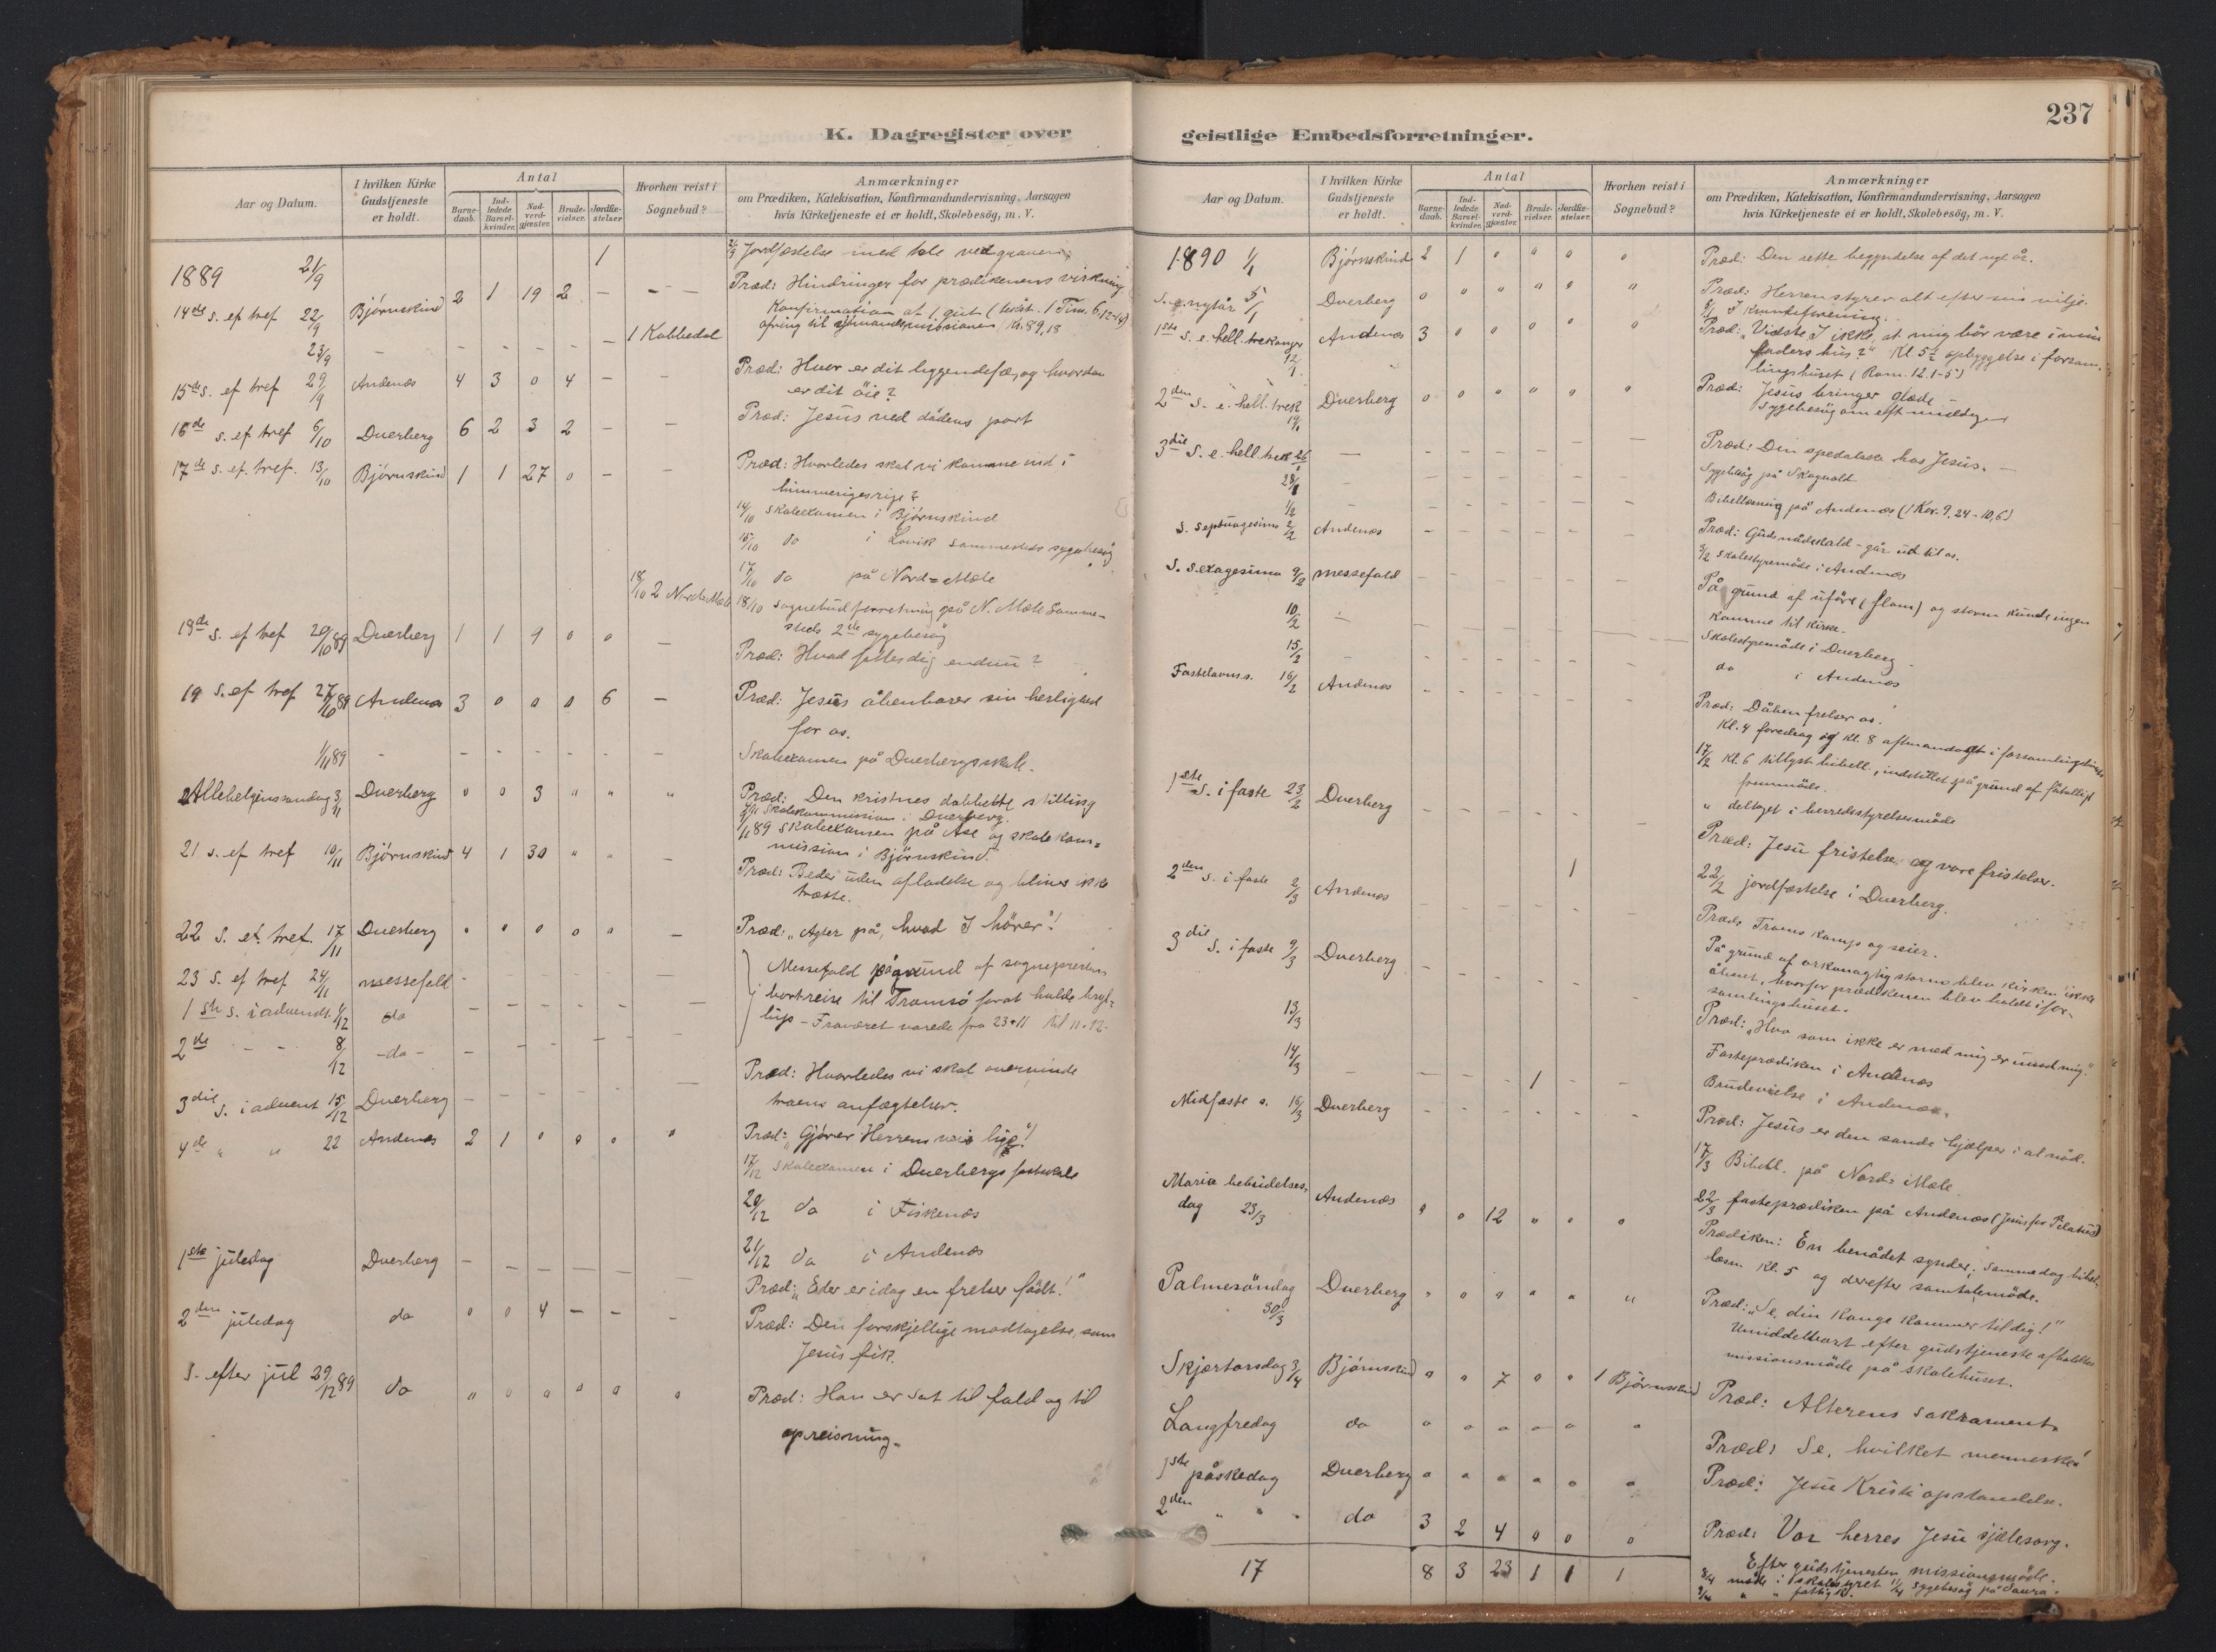 K. Dagregister over
Aar og Datum. | I hvilken Kirke Gudstjeneste er holdt. | Antal | Barnedaab. | Indledede Barselkvinder. | Nadverdgjæster. | Brudevielser. | Jordfæstelser | Hvorhen reist i Sognebud? | Anmærkninger om Prædiken, Katekisation, Konfirmandundervisning, Aarsagen hvis Kirketjeneste ei er holdt, Skolebesög, m. V.
1889 21/9 1 21/9 Jordfæstelse med tale ved graven
14de s. ef tref 22/9 Bjørnskind 2 1 19 2 – – – Præd: Hindringer for prædikenens virkning
Konfirmation af 1 gut (tekst. 1 Tim. 6,12-14)
ofring til sjömandsmissionen Kr. 89,18
23/9 – – – – – – 1 Kobbedal
15de s. ef tref 29/9 Andenæs 4 3 0 4 – – Præd: Hvor er dit liggendefæ, og hvordan
er dit öie?
16de s. ef tref 6/10 Dverberg 6 2 3 2 – – Præd: Jesus ved dödens port
17de s. ef tref. 13/10 Bjørnskind 1 1 27 0 – – Præd: Hvorledes skal vi komme ind i
himmeriges rige?
14/10 skoleexamen i Bjørnskind
15/10 do i Lovik sammesteds sygebesög
17/10 do på Nord=Mæle
18/10 2 Nord-Mæle 18/10 sognebudforretning på N. Mæle Samme-
steds 2de sygebesög
18de s. ef tref 20/10 89 Dverberg 1 1 9 0 0 – Præd: Hvad fattes dig endnu?
19 s. ef tref 27/10 89 Andenæs 3 0 0 0 6 – Præd: Jesus åbenbarer sin herlighed
for os.
1/11 89 – – – – – – – Skoleexamen på Dverbergs skole.
Allehelgenssøndag 3/11 Dverberg 0 0 3 " " " Præd: Den kristnes dobbelte stilling
Skolekommission i Dverberg.
89 Skoleexamen på Åse og skolekom=
mission i Bjørnskind.
21 s. ef tref 10/11 Bjørnskind 4 1 30 " " – Præd: Beder uden afladelse og blives ikke
trætte.
22 s. ef. tref. 17/11 Dverberg 0 0 0 0 0 – Præd: „Agter på, hvad I hörer"!
23 s. ef tref 24/11 messefald – – – – – – Messefald på grund af sogneprestens
1ste s. i advendt. 1/12 do – – – – – – bortreise til Tromsö forat holde bryl=
2de – – 8/12 –do– – – – – – – lup – Fraværet varede fra 23-11 til 11-12.
3die s. i advent 15/12 Dverberg – – – – – – Præd: Hvorledes vi skal overvinde
troens anfægtelser.
4de " " 22 Andenæs 2 1 0 0 0 0 Præd: „Gjører Herrens vei lige"!
17/12 skoleexamen i Dverbergs fastskole
20/12 do i Fiskenæs
21/12 do i Andenæs
1ste juledag Dverberg – – – – – – Præd: „Eder er idag en frelser födt!"
2den juledag do 0 0 4 – – – Præd: Den forskjellige modtagelse, som
Jesus fik.
S. efter jul 29/12 89 do " 0 0 0 0 0 Præd: Han er sat til fald og til
opreisning.
237
geistlige Embedsforretninger.
Aar og Datum. | I hvilken Kirke Gudstjeneste er holdt. | Antal | Barnedaab. | Indledede Barselkvinder. | Nadverdgjæster. | Brudevielser. | Jordfæstelser. | Hvorhen reist i Sognebud? | Anmærkninger om Prædiken, Katekisation, Konfirmandundervisning, Aarsagen hvis Kirketjeneste ei er holdt, Skolebesög, m. V.
1890 1/1 Bjørnskind 2 1 0 0 0 0 Præd: Den rette begyndelse af det nye år.
S. e. nytår 5/1 Dverberg 0 " " " 0 " Præd: Herren styrer alt efter sin vilje.
1ste s. e. hell. trekonger 12/1 Andenæs 3 0 0 0 0 0 Præd: „Vidste I ikke, at mig bör være i min
faders hus?" Kl. 5½ opbyggelse i forsam-
lingshuset (Rom. 12.1-5)
2den s. e. hell. trek 19/1 Dverberg 0 0 0 " " " Præd: Jesus bringer glæde –
Sygebesög om eftermiddagen
3die s. e. hell. trek 26/1 – – – – – – – Præd: Den spedalske hos Jesus. –
28/1 – – – – – – – Sygebesög på Skogvold
1/2 – – – – – – – Bibellæsning på Andenæs (1 Kor. 9,24-10,6)
S. septuagesima 2/2 Andenæs – – – – – – Præd: Guds nådeskald – går ud til os.
3/2 skolestyremöde i Andenæs
S. sexagesima 9/2 messefald – – – – – – På grund af uföre (flom) og storm kunde ingen
komme til kirke.
10/2 – – – – – – – Skolestyremöde i Dverberg
15/2 – – – – – – – do i Andenæs
Fastelavns s. 16/2 Andenæs – – – – – – Præd: Dåben frelser os.
Kl. 4 foredrag og kl. 8 aftenandagt i forsamlingshuset
17/2 kl. 6 tillyst bibell., indstillet på grund af fåtalligt
fremmöde.
" deltaget i herredsstyrelsesmöde
1ste s. i faste 23/2 Dverberg – – – – – – Præd: Jesu fristelse og vore fristelser.
1 22/2 jordfæstelse i Dverberg.
2den s. i faste 2/3 Andenæs – – – – – – Præd: Troens kamp og seier.
På grund af orkanagtig storm blev kirken ikke
åbnet, hvorfor prædikenen blev holdt i for-
samlingshuset.
3die s. i faste 9/3 Dverberg – – – – – – Præd: „Hvo som ikke er med mig er imod mig."
13/3 Fasteprædiken i Andenæs
14/3 – – – – 1 – – Brudevielse i Andenæs.
Midfaste s. 16/3 Dverberg – – – – – – Præd: Jesus er den sande hjælper i al nöd.
17/3 Bibell. på Nord=Mæle
22/3 fasteprædiken på Andenæs (Jesus for Pilatus)
Mariæ bebudelses-
dag 23/3 Andenæs 0 0 12 0 0 0 Prædiken: En benådet synder; Sammedag bibel-
læsn kl. 5 og derefter samtalemöde.
Palmesöndag 30/3 Dverberg " 0 0 " " " Præd: „Se, din konge kommer til dig!"
Umiddelbart efter gudstjeneste afholdtes
missionsmöde på skolehuset.
Skjærtorsdag 3/4 Bjørnskind 0 0 7 0 0 1 Bjørnskind Præd: Alterens sakrament.
Langfredag do 0 0 0 0 0 0 Præd: Se, hvilket menneske!
1ste påskedag Dverberg 0 0 0 0 0 0 Præd: Jesu Kristi opstandelse.
2den " " do 3 2 4 0 0 0 Præd: Vor herres Jesu sjælesorg.
17 8 3 23 1 1 1 Efter gudstjenesten missionsmöde.
8/4 möde i skolestyret 11/4 sygebesög på Saura.
9/4 " " fattigk.